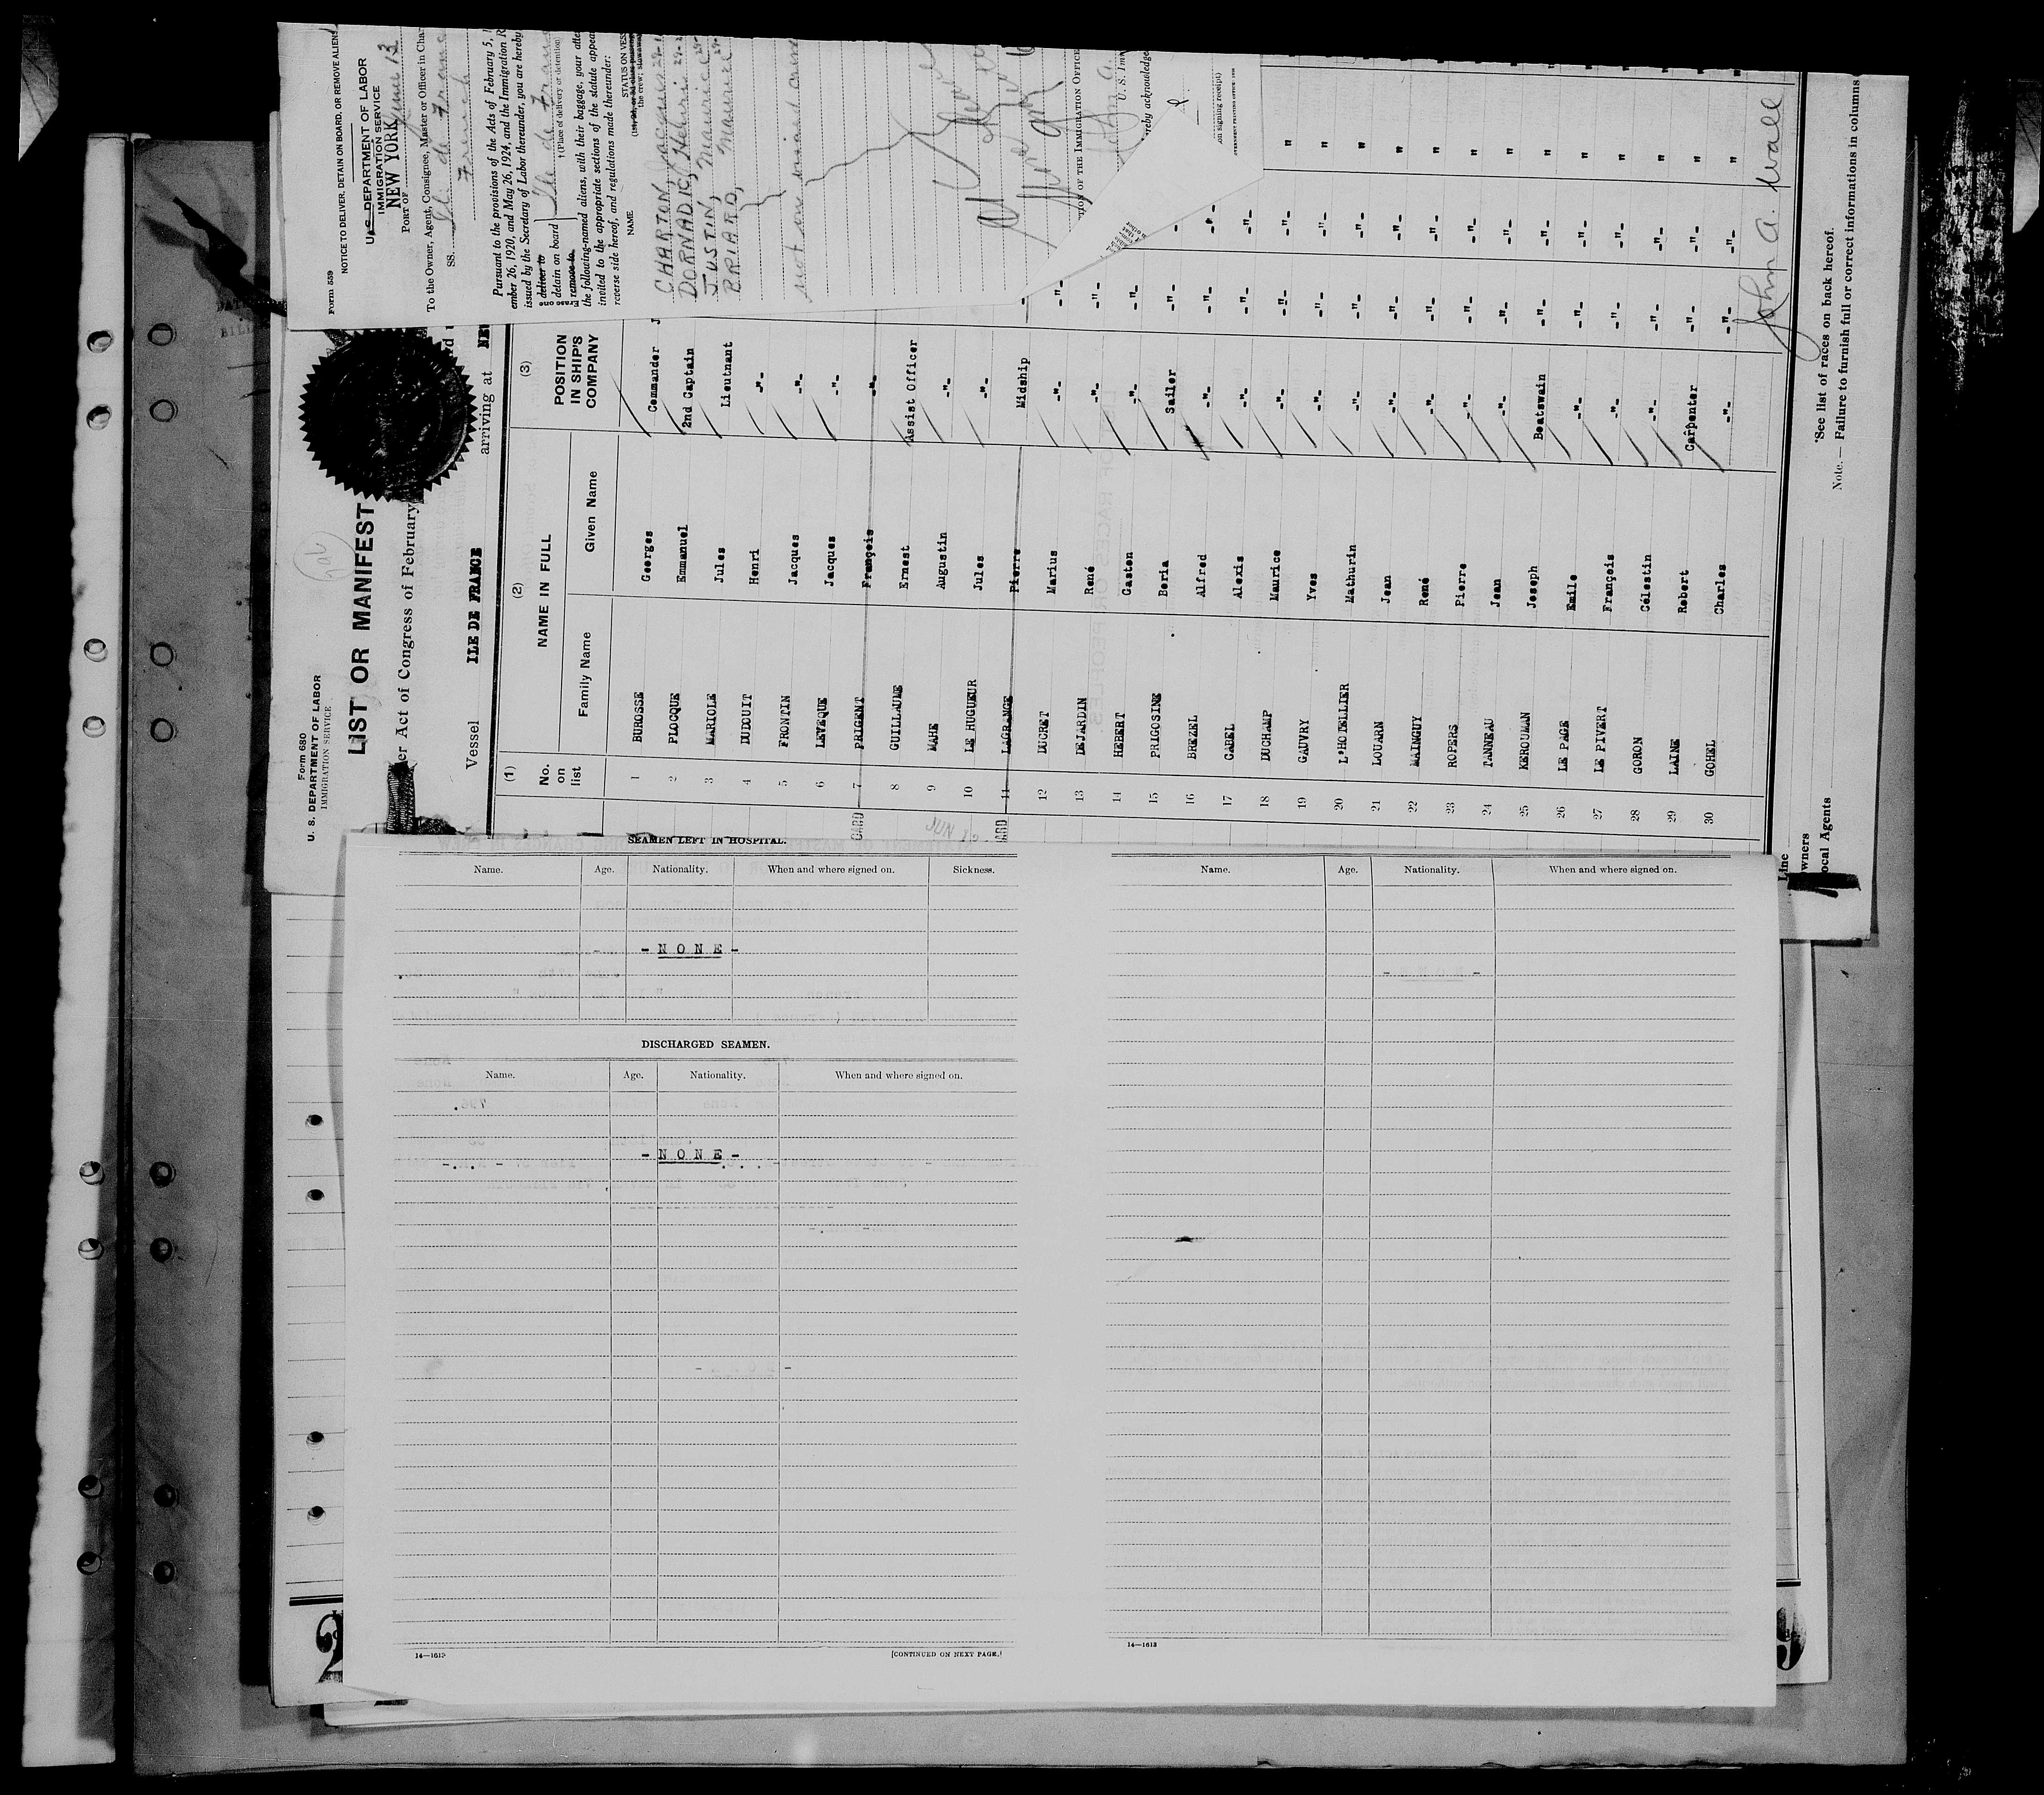 Form 559
NOTICE TO DELIVER, DETAIN ON BOARD, OR REMOVE ALIENS
U. S. DEPARTMENT OF LABOR
IMMIGRATION SERVICE
NEW YORK
PORT OF
June 13
To the Owner, Agent, Consignee, Master or Officer in Char
SS. Ile de France
French
Pursuant to the provisions of the Acts of February 5,
ember 26, 1920, and May 26, 1924, and the Immigration R
issued by the Secretary of Labor thereunder, you are hereby
deliver to
detain on board
remove to
Ile de Franc
† (Place of delivery or detention)
the following-named aliens, with their baggage, your atte
invited to the appropriate sections of the statute appea
reverse side hereof, and regulations made thereunder:
NAME
STATUS ON VESS
the crew; stowaway
CHARTON, Jacques 29-
DORNADIC, Henri 29-
JUSTIN, Maurice 29-
Maurice 29-
not on visaed crew
ION OF THE IMMIGRATION OFFICE
John A.
U. S. Im
reby acknowledge
on signing receipt)
Form 680
U. S. DEPARTMENT OF LABOR
IMMIGRATION SERVICE
LIST OR MANIFEST
er Act of Congress of February
Vessel ILE DE FRANCE arriving at NE
(1) (2) (3)
No. on list
NAME IN FULL
Family Name Given Name
POSITION IN SHIP'S COMPANY
1 BUROSSE Georges Commander
2 PLOCQUE Emmanuel 2nd Captain
3 MARIOLE Jules Lieutnant
4 DUDOUIT Henri -"-
5 FRONTIN Jacques -"-
6 LEVEQUE Jacques -"-
7 PRIGENT François -"-
8 GUILLAUME Ernest Assist Officer
9 MAHE Augustin -"-
10 LE HUGUEUR Jules -"-
11 LAGRANGE Pierre Midship
12 DUCRET Marius -"- -"-
13 DEJARDIN René -"- -"-
14 HEBERT Gaston -"- -"-
15 PRIGOSINE Boria Sailor -"- -"-
16 BREZEL Alfred -"- -"- -"-
17 CABEL Alexis -"- -"- -"-
18 DUCHAMP Maurice -"- -"- -"- "
19 GAUVRY Yves -"- -"- -"- "
20 L'HOTELLIER Mathurin -"- -"- -"- "
21 LOUARN Jean -"- -"- -"- "
22 MAINGUY René -"- -"- -"- "
23 ROPERS Pierre -"- -"- -"- "
24 TANNEAU Jean -"- -"- -"- "
25 KEROUMAN Joseph Boatswain -"- -"- "
26 LE PAGE Emile -"- -"- -"- "
27 LE PIVERT François -"- -"- -"- "
28 GORON Célestin -"- -"- -"- "
29 LAINE Robert Carpenter -"- -"- "
30 GOHEL Charles -"- -"- -"- "
CARD
JUN 13
ARD
John A. Wall
*See list of races on back hereof.
Note. — Failure to furnish full or correct informations in columns
Line
wners
ocal Agents
SEAMEN LEFT IN HOSPITAL.
Name. Age. Nationality. When and where signed on. Sickness.
- N O N E -
DISCHARGED SEAMEN.
Name. Age. Nationality. When and where signed on.
- N O N E -
14—1613
[CONTINUED ON NEXT PAGE.]
Name. Age. Nationality. When and where signed on.
14—1613